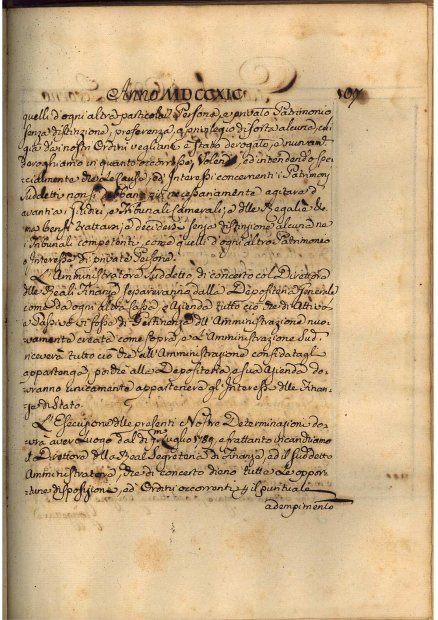 Anno MDCCXIC
quelli d'ogni altro particolar Persona, e privato Patrimonio
senza distinzione, preferenza, o privilegio di sorta alcuna, col
già dai nostri Ordini veglianti è stato derogato, e nuovam.
deroghiamo in quanto occorresse, Volendo, ed intendendo spe-
cialmente che le Cause, ed Interessi concernenti i Patrimoni
suddetti non si debbano più necessariamente agitare d'
avanti a i Giudici, e Tribunali Camerali, e delle Regalie, Me
ma bensì trattarsi, e decidersi senza distinzione alcuna ne
Tribunali competenti, come quelli d'ogni altro Patrimonio
o Interesse di private Persone.
L'Amministratore suddetto di concerto col Direttore
delle Reali Finanze separeranno dalla Depositeria Generale
come da ogni altra Cassa, e Azienda tutto ciò che di Attivo,
e Passivo vi fosse di Pertinenza dell'Amministrazione nuo-
vamente creata come sopra, e l'Amministrazione sud.
riceverà tutto ciò che all'Amministrazione confidatagli
appartenga, poichè alla Depositeria e sua Azienda do-
vranno unicamente appartenere gl'Interessi delle Finan-
ze di Stato.
L'Esecuzione delle presenti Nostre Determinazioni do-
vrà aver luogo dal dì p.mo Luglio 1789, e frattanto incarichiamo
il Direttore della Real Segreteria di Finanze, ed il suddetto
Amministratore, che di concerto dieno tutte le oppor-
tune disposizioni, ed Ordini occorrenti p il puntuale
adempimento